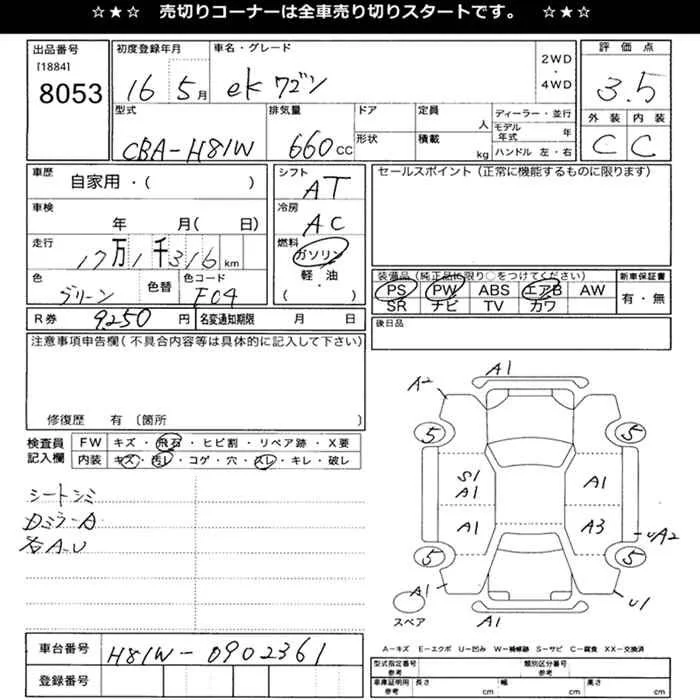 ☆★☆ 売切りコーナーは全車売り切りスタートです。 ☆★☆
出品番号
[1884]
8053
初度登録年月
16 5月
車名・グレード
ek ワゴン
2WD
・
4WD
評価点
3.5
外装 内装
C C
型式
CBA-H81W
排気量
660cc
ドア
形状
定員
人
積載
kg
ディーラー・並行
モデル年式 年
ハンドル 左・右
車歴
自家用・( )
車検
年 月( 日)
走行
17万1千316km
色
グリーン
色替
色コード
F04
シフト
AT
冷房
AC
燃料
ガソリン
軽・油
( )
セールスポイント(正常に機能するものに限ります)
装備品(純正品に限り○をつけてください)
PS PW ABS エアB AW
SR ナビ TV カワ
新車保証書
有・無
R券 9250円
名変通知期限 月 日
後日品
注意事項申告欄(不具合内容等は具体的に記入して下さい)
修復歴 有 〔箇所
検査員
記入欄
FW キズ・飛石・ヒビ割・リペア跡・X要
内装 キズ・汚レ・コゲ・穴・スレ・キレ・破レ
シートシミ
Dミラ-A
各A-U
A1
A2
5 5
S1
A1
A1
A1
A3
UA2
5 5
A1
U1
A1
スペア
A-キズ E-エクボ U-凹み W-補修跡 S-サビ C-腐食 XX-交換済
車台番号 H81W-0902361
登録番号
型式指定番号
参考
類別区分番号
参考
車庫証明用
参考
長さ cm
幅 cm
高さ cm